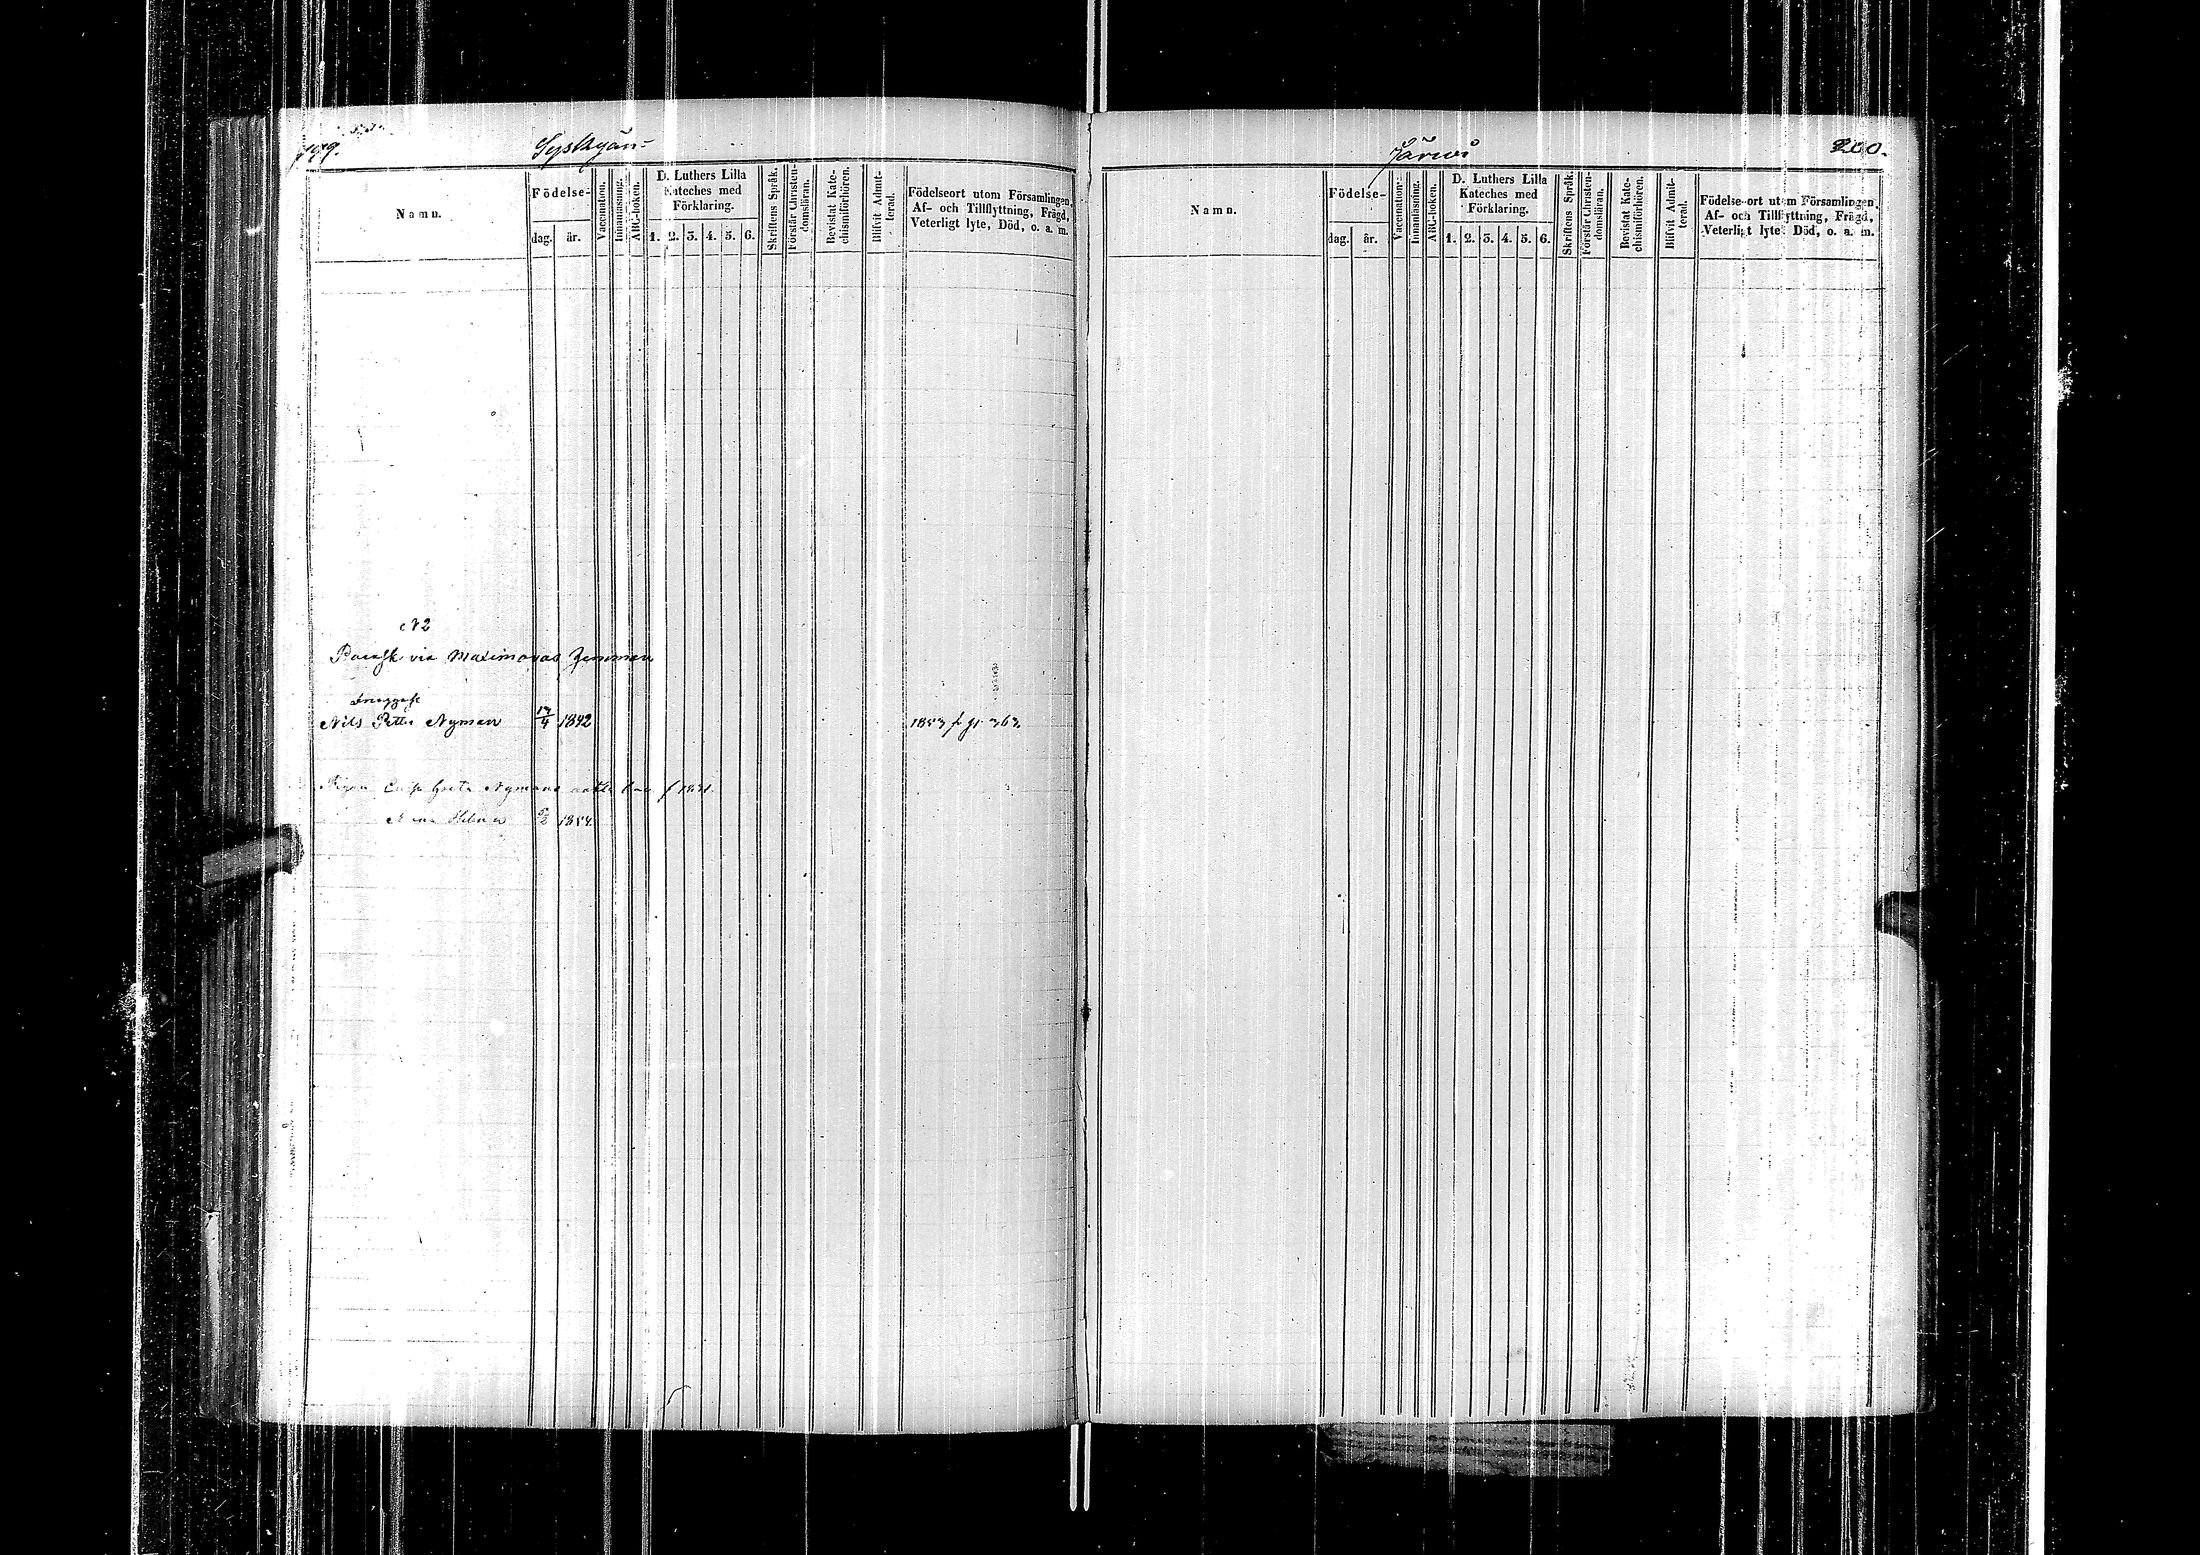 199.
Syskyän-
Namn.
Födelse-
dag. år.
Vaccination.
Innanläsning.
ABC-boken.
D. Luthers Lilla
Kateches med
Förklaring.
1. 2. 3. 4. 5. 6.
Skriftens Språk.
Förstår Christen-
domsläran.
Bevistat Kate-
chismiförhören.
Blifvit Admit-
terad.
Födelseort utom Församlingen,
Af- och Tillflyttning, Frägd,
Veterligt lyte, Död, o. a. m.
N2
via Maximovas
Nils Petter Nyman 17/4 1842 1853 f
Pigan Greta Nymans f 1831.
Anna 1854.
Järwi
200.
Namn.
Födelse-
dag. år.
Vaccination.
Innanläsning.
ABC-boken.
D. Luthers Lilla
Kateches med
Förklaring.
1. 2. 3. 4. 5. 6.
Skriftens Språk.
Förstår Christen-
domsläran.
Bevistat Kate-
chismiförhören.
Blifvit Admit-
terad.
Födelseort utom Församlingen,
Af- och Tillflyttning, Frägd,
Veterligt lyte, Död, o. a. m.